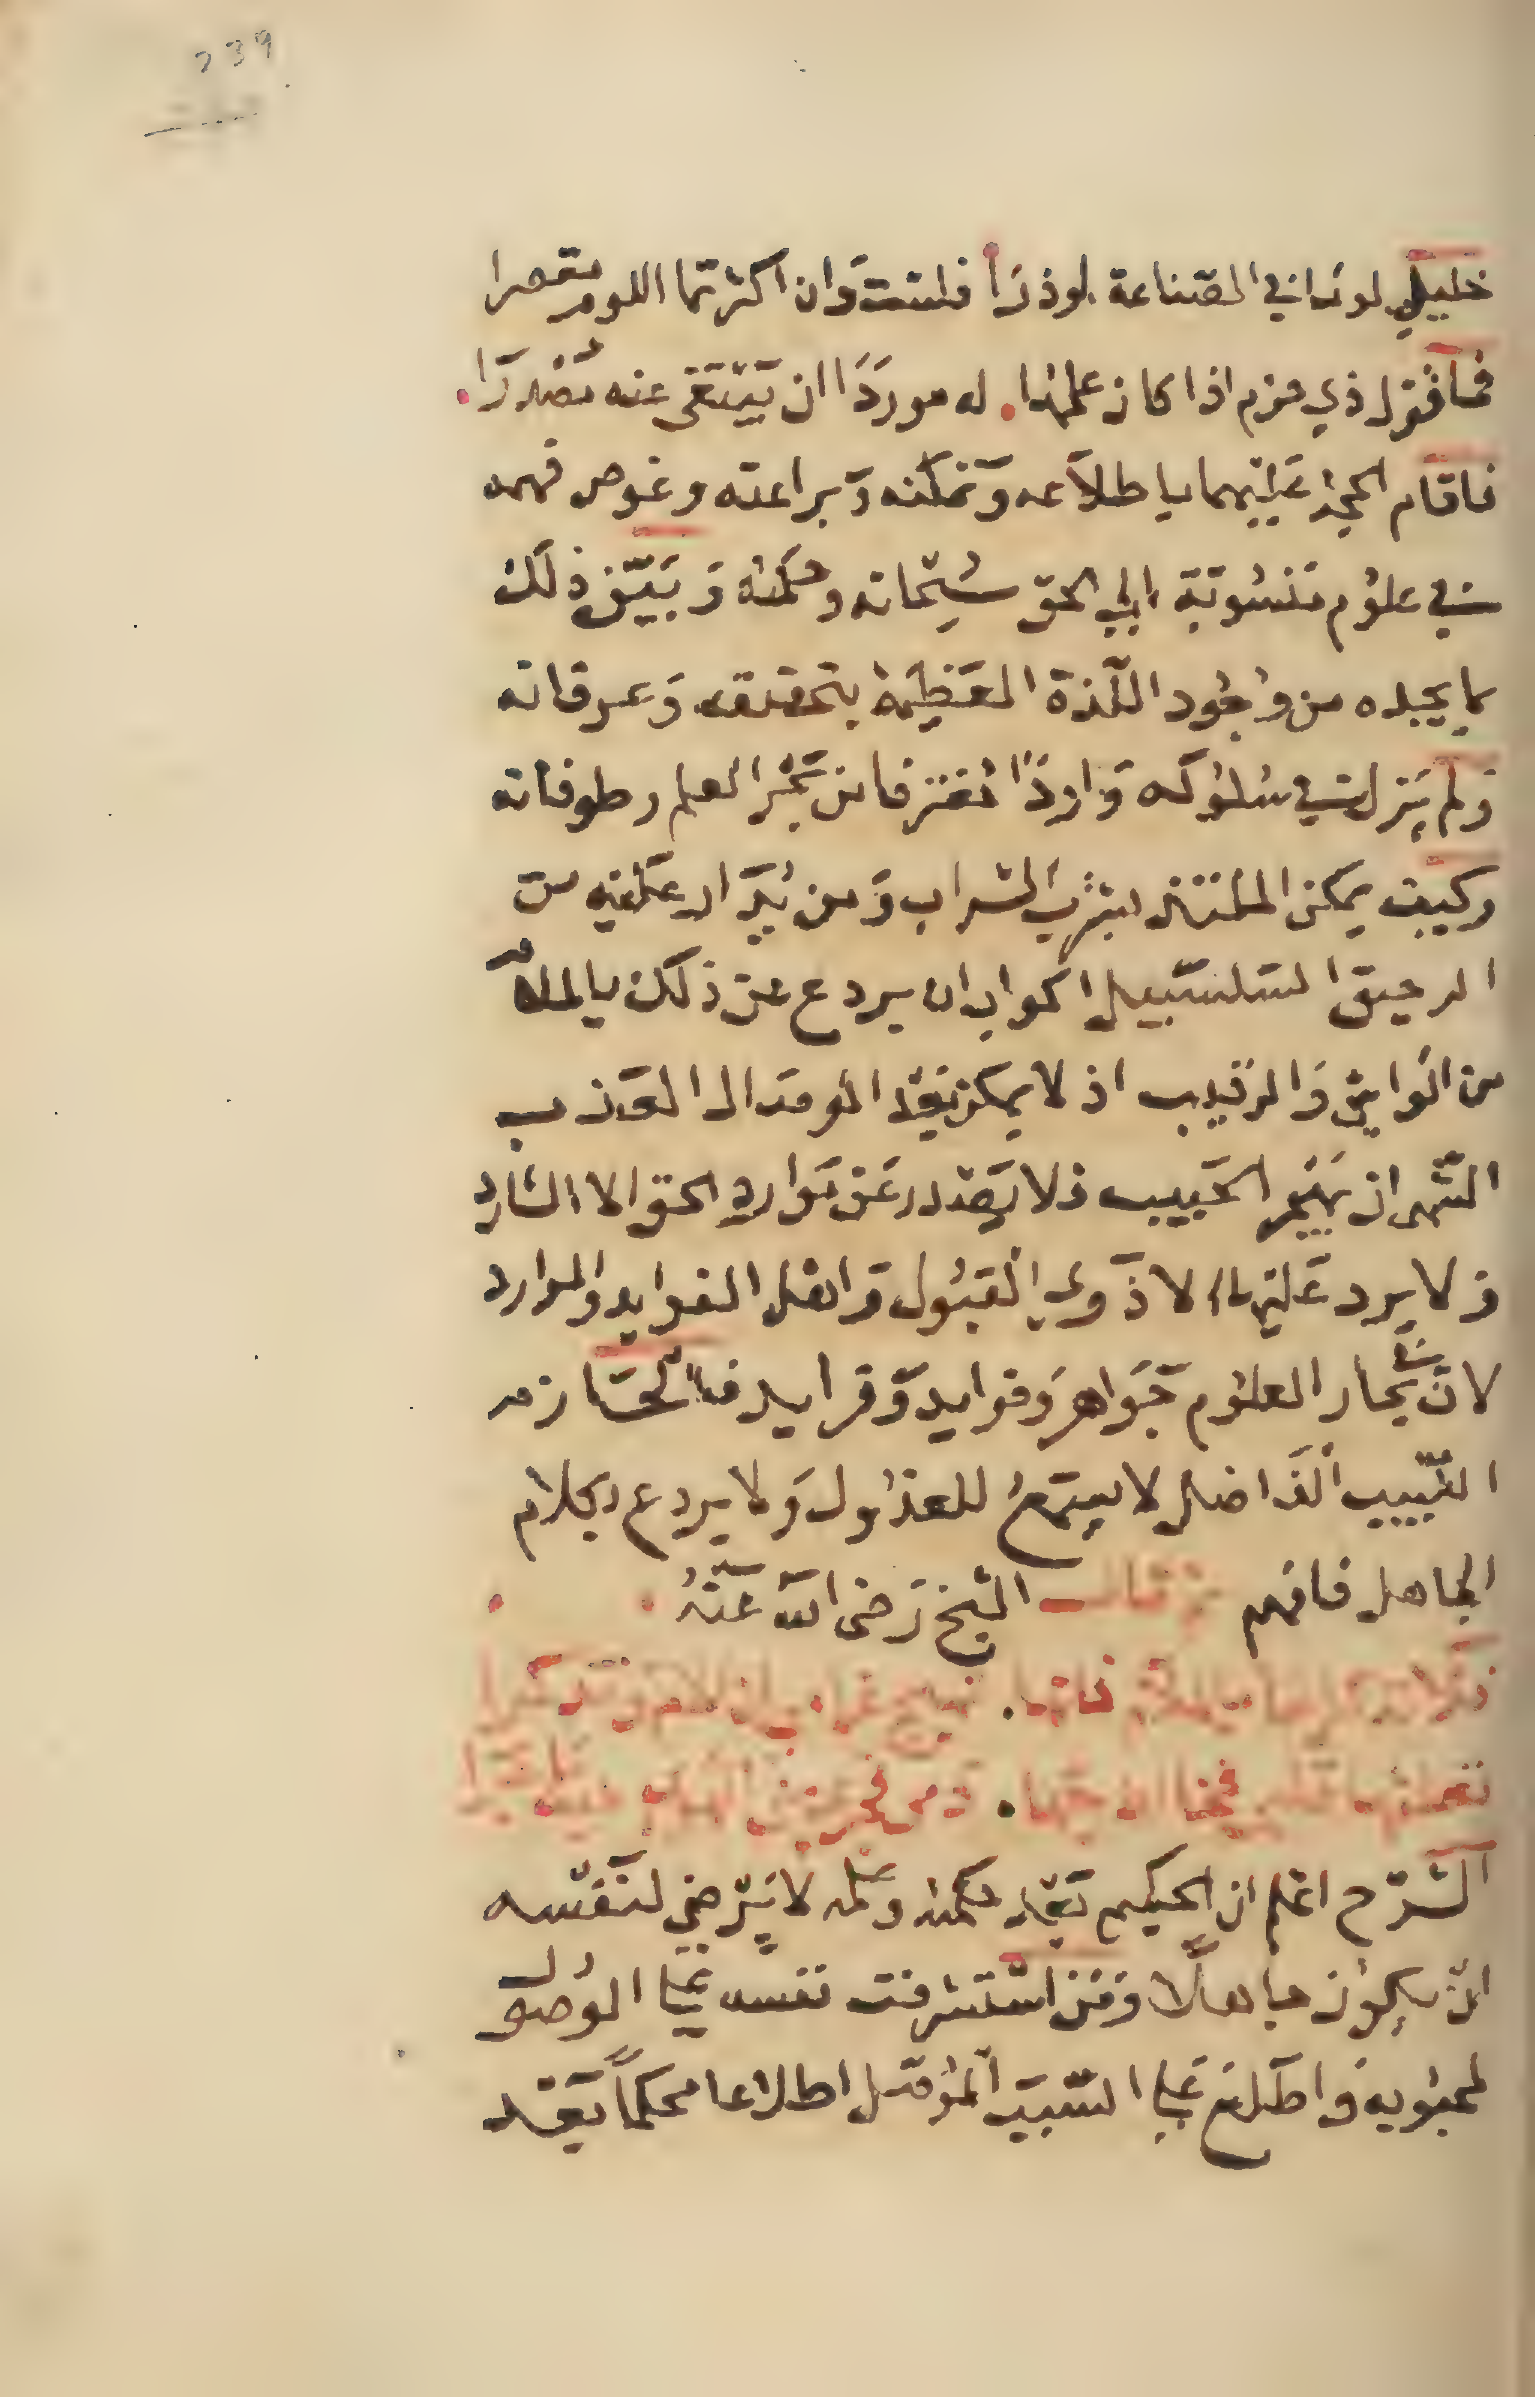 239
خليلي لوما في الصناعة او ذرا فلست وان اكثرتما اللوم مقصرا
فما قول ذي حزم اذا كان علمنا . له موردا ان يبتغى عنه مصدرا .
فاقام الحجة عليهما باطلاعه وتمكنه وبراعته وغوص فهمه
في علوم منسوبة الى الحق سبحانه وحكمته وبين ذلك
بما يجده من وجود اللذة العظيمة بتحقيقه وعرفانه
ولم يزل في سلوكه واردا مغترفا من بحر العلم وطوفانه
وكيف يمكن الملتذ بشرب الشراب ومن يدار عليه من
الرحيق السلسبيل اكواب ان يردع عن ذلك بالملام
من الواشي والرقيب اذ لا يمكن بعد الوصال العذب
الشهى ان يهجر الحبيب فلا يصدر عن موارد الحق الا الشارد
ولا يرد عليها الا ذوي القبول واهل الفوايد والموارد
لان في بحار العلوم جواهر وفوايد وفرايد فالحازم
اللبيب الفاضل لا يسمع للعذول ولا يردع بكلام
الجاهل فافهم ثم قال الشيخ رضى الله عنه .
الشرح اعلم ان الحكيم بعد حكمته وعلمه لا يرضى لنفسه
ان يكون جاهلا ومن استشرفت نفسه على الوصول
لمحبوبه واطلع على السبب الموصل اطلاعا محكما بعد